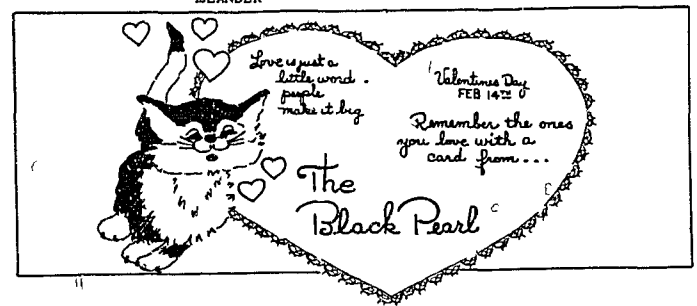 Love is just a
little word.
people
make it big
Valentines Day
FEB 14TH
Remember the ones
you love with a
card from...
The
Black Pearl